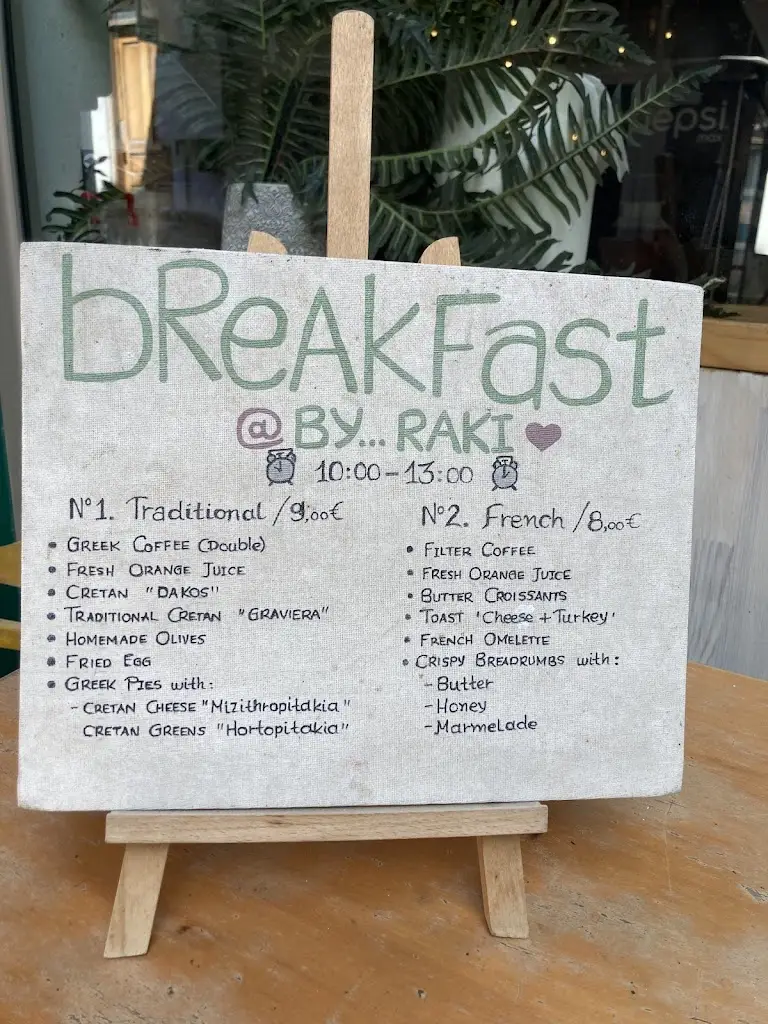 epsi
max
breakfast
@ BY... RAKI
10:00-13:00
Nº1. Traditional /9,00€
• GREEK COFFEE (Double)
• FRESH ORANGE JUICE
• CRETAN "DAKOS"
• TRADITIONAL CRETAN "GRAVIERA"
• HOMEMADE OLIVES
• FRIED EGG
• GREEK PIES with:
- CRETAN CHEESE "Mizithropitakia"
CRETAN GREENS "Hortopitakia"
Nº2. French /8,00€
• FILTER COFFEE
• FRESH ORANGE JUICE
• BUTTER CROISSANTS
• TOAST 'Cheese + Turkey'
• FRENCH OMELETTE
• CRISPY BREADRUMBS with:
- Butter
- Honey
- Marmelade